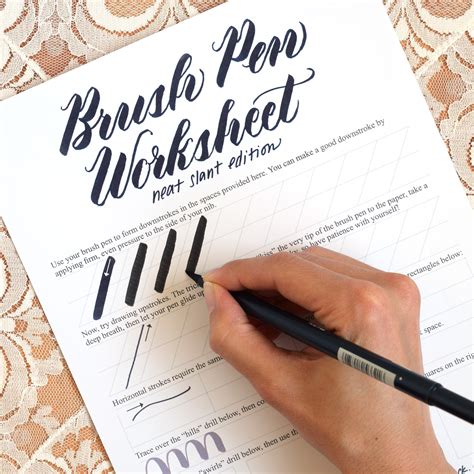 Brush Pen
Worksheet
neat slant edition
Use your brush pen to form downstrokes in the spaces provided here. You can make a good downstroke by
applying firm, even pressure to the side of your nib.
Now, try drawing upstrokes. The tric "kissing" the very tip of the brush pen to the paper, take a
deep breath, then let your pen glide up so have patience with yourself!
Horizontal strokes require the same rectangles below:
Trace over the "hills" drill below, then
"swirls" drill below, then use the